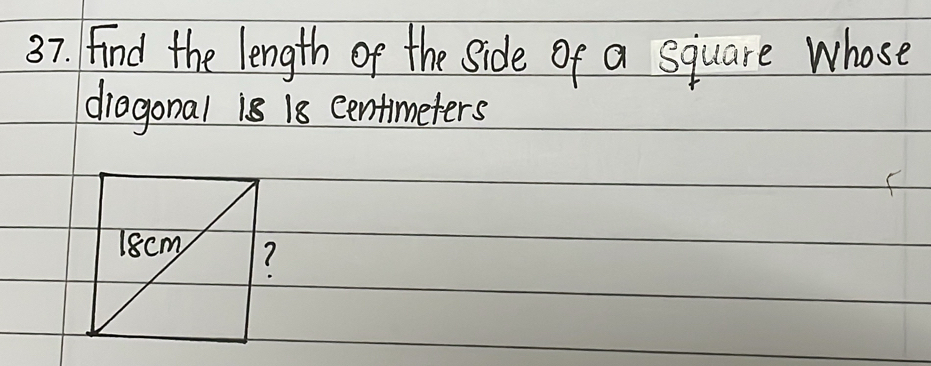 37. Find the length of the side of a square whose
diagonal is 18 centimeters
18cm
?